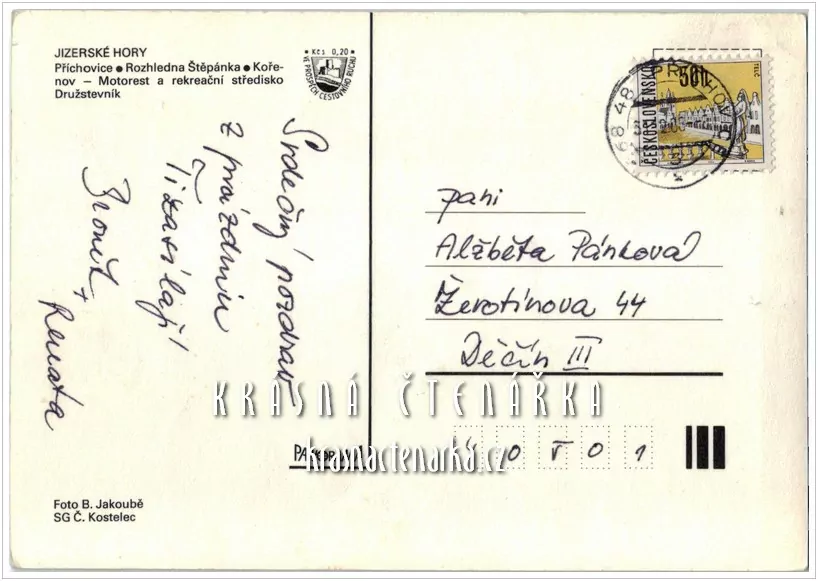 JIZERSKÉ HORY
Příchovice ● Rozhledna Štěpánka ● Koře-
nov – Motorest a rekreační středisko
Družstevník
• Kčs 0,20 •
VE PROSPĚCH CESTOVNÍHO RUCHU
Srdečný pozdrav
z prázdnin
Ti zasílají
+
Renata
Foto B. Jakoubě
SG Č. Kostelec
468 48
ČESKOSLOVENSKO
50h
TELČ
paní
Alžběta Pánková
Žerotínova 44
Děčín III
KRÁSNÁ ČTENÁŘKA
krasnactenarka.cz
4 0 5 0 1